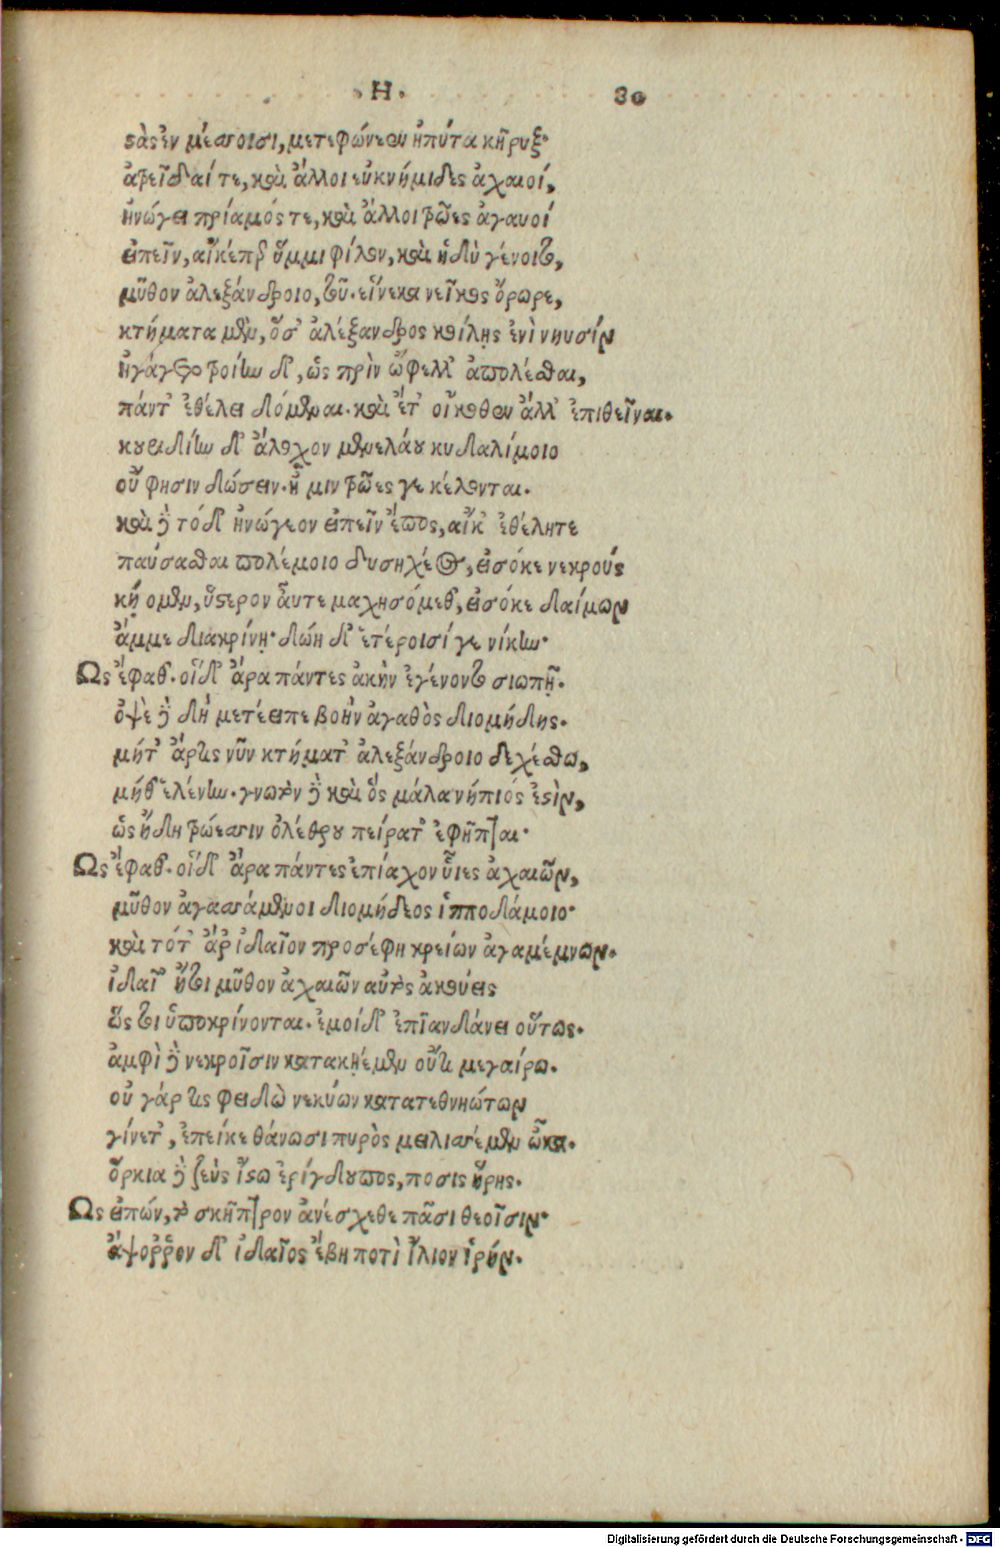 .Η. 80
στὰς ἐν μέσσοισι, μετεφώνεεν ἠπύτα κῆρυξ·
ἀτρεῖδαί τε, καὶ ἄλλοι ἐυκνήμιδες ἀχαιοί,
ἠνώγει πρίαμός τε, καὶ ἄλλοι τρῶες ἀγαυοί
εἰπεῖν, αἴκέπερ ὔμμι φίλον, καὶ ἡδὺ γένοιτο,
μῦθον ἀλεξάνδροιο, τοῦ. εἵνεκα νεῖκος ὄρωρε,
κτήματα μὲν, ὅσ' ἀλέξανδρος κοίλῃς ἐνὶ νηυσίν
ἠγάγετο τροίην δ', ὡς πρὶν ὤφελλ' ἀπολέσθαι,
πάντ' ἐθέλει δόμεναι. καὶ ἔτ' οἴκοθεν ἄλλ' ἐπιθεῖναι.
κουριδίην δ' ἄλοχον μενελάου κυδαλίμοιο
οὔ φησιν δώσειν. ἦ μιν τρῶες γε κέλονται.
καὶ δὲ τόδ' ἠνώγεον εἰπεῖν ἔπος, αἴκ' ἐθέλητε
παύσασθαι πολέμοιο δυσηχέος, εἰσόκε νεκρούς
κήομεν, ὕστερον αὖτε μαχησόμεθ', εἰσόκε δαίμων
ἄμμε διακρίνῃ· δώῃ δ' ἑτέροισί γε νίκην·
Ως ἔφαθ'. οἱ δ' ἄρα πάντες ἀκὴν ἐγένοντο σιωπῇ.
ὀψὲ δὲ δὴ μετέειπε βοὴν ἀγαθὸς διομήδης.
μήτ' ἄρ τις νῦν κτήματ' ἀλεξάνδροιο δεχέσθω,
μήθ' ἑλένην. γνωτὸν δὲ καὶ ὃς μάλα νήπιός ἐστὶν,
ὡς ἤδη τρώεσσιν ὀλέθρου πείρατ' ἐφῆπται·
Ως ἔφαθ'. οἱ δ' ἄρα πάντες ἐπίαχον υἷες ἀχαιῶν,
μῦθον ἀγασσάμενοι διομήδεος ἱπποδάμοιο·
καὶ τότ' ἄρ' ἰδαῖον προσέφη κρείων ἀγαμέμνων.
ἰδαῖ' ἤτοι μῦθον ἀχαιῶν αὐτὸς ἀκούεις
ὥς τοι ὑποκρίνονται. ἐμοί δ' ἐπιανδάνει οὕτως.
ἀμφὶ δὲ νεκροῖσιν κατακῃέμεν οὔτι μεγαίρω.
οὐ γάρ τις φειδὼ νεκύων κατατεθνηώτων
γίνετ', ἐπείκε θάνωσι πυρὸς μειλισσέμεν ὦκα.
ὅρκια δὲ ζεὺς ἴστω ἐρίγδουπος, πόσις ἥρης.
Ως εἰπών, τὸ σκῆπτρον ἀνέσχεθε πᾶσι θεοῖσιν·
ἄψοῤῥον δ' ἰδαῖος ἔβη ποτὶ ἴλιον ἱρήν.
Digitalisierung gefördert durch die Deutsche Forschungsgemeinschaft - DFG